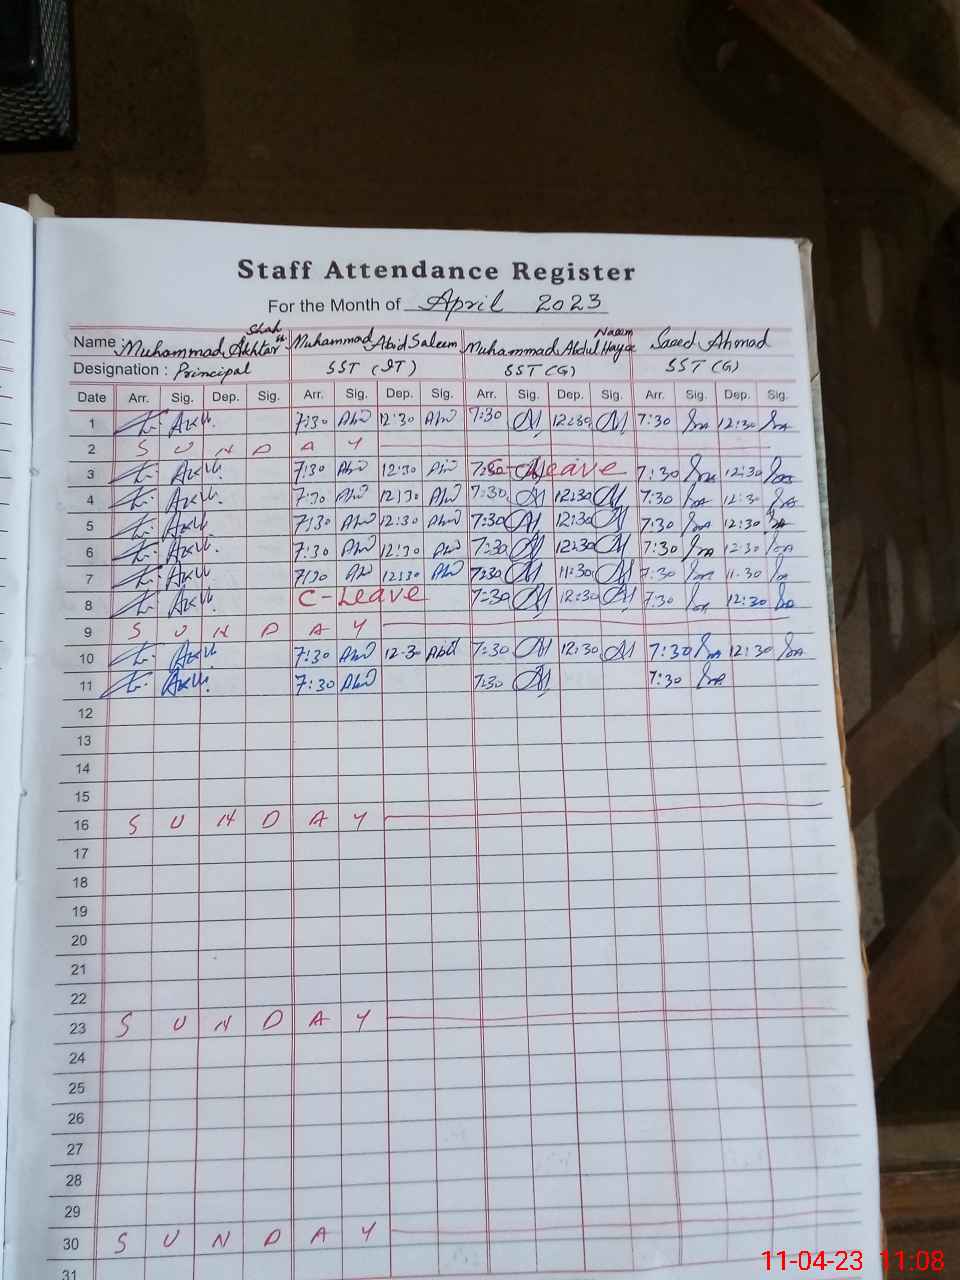 Staff Attendance Register
For the Month of April 2023
Name : Muhammad Akhtar Shah Muhammad Abid Saleem Muhammad Abdul Hayee Naeem Saeed Ahmad
Designation : Principal SST (IT) SST (G) SST (G)
Date Arr. Sig. Dep. Sig. Arr. Sig. Dep. Sig. Arr. Sig. Dep. Sig. Arr. Sig. Dep. Sig.
1 7:30 Abid 12:30 Abid 7:30 12:30 7:30 12:30
2 S U N D A Y
3 7:30 Abid 12:30 Abid 7:30 Leave 7:30 12:30
4 7:30 Abid 12:30 Abid 7:30 12:30 7:30 12:30
5 7:30 Abid 12:30 Abid 7:30 12:30 7:30 12:30
6 7:30 Abid 12:30 Abid 7:30 12:30 7:30 12:30
7 7:30 Abid 12:30 Abid 7:30 11:30 7:30 11:30
8 C-Leave 7:30 12:30 7:30 12:30
9 S U N D A Y
10 7:30 Abid 12:30 Abid 7:30 12:30 7:30 12:30
11 7:30 Abid 7:30 7:30
12
13
14
15
16 S U N D A Y
17
18
19
20
21
22
23 S U N D A Y
24
25
26
27
28
29
30 S U N D A Y
31
11-04-23 11:08